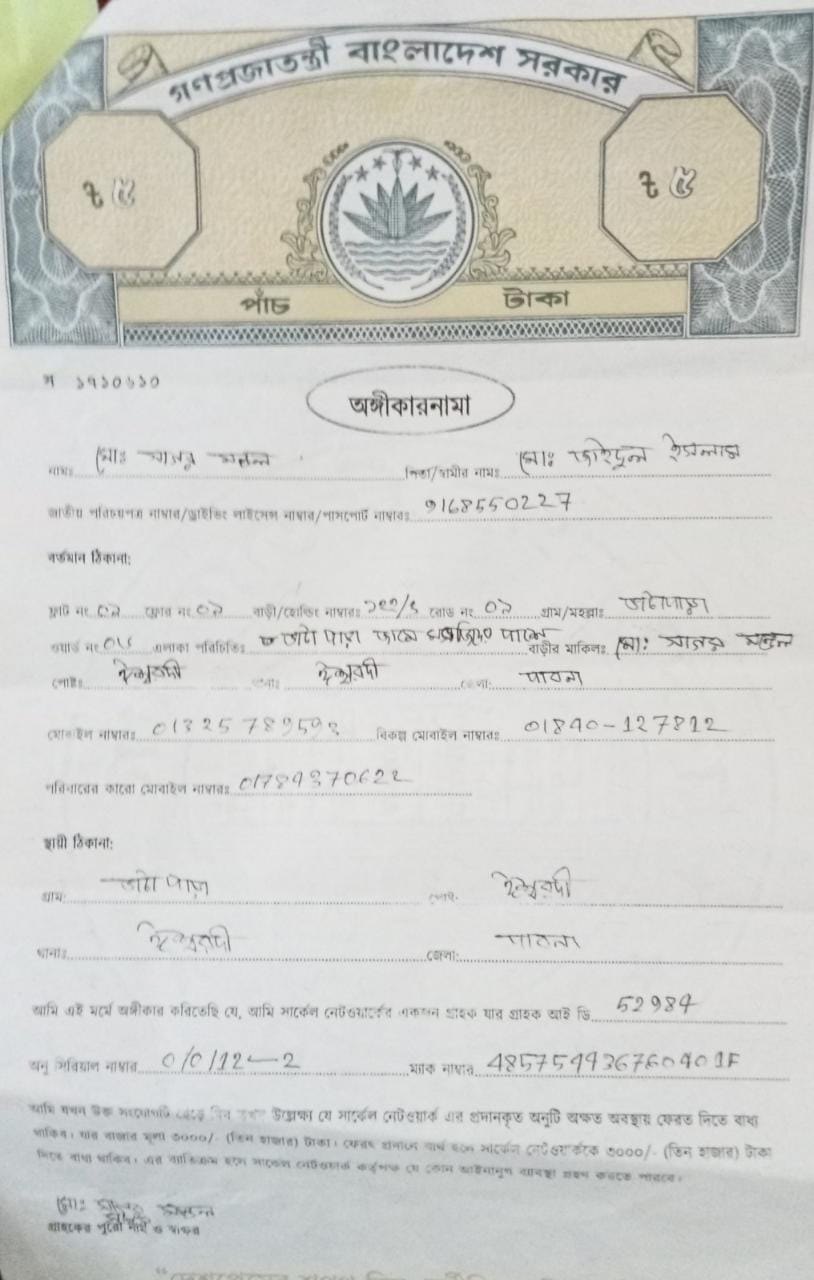 গণপ্রজাতন্ত্রী বাংলাদেশ সরকার
৳ ৫ ৳ ৫
পাঁচ টাকা
অঙ্গীকারনামা
নামঃ মোঃ পিতা/স্বামীর নামঃ মোঃ জহিদুল ইসলাম
জাতীয় পরিচয়পত্র নাম্বার/ড্রাইভিং লাইসেন্স নাম্বার/পাসপোর্ট নাম্বারঃ 9168550227
বর্তমান ঠিকানা:
ফ্লাট নং ০১ ফ্লোর নং ০১ বাড়ী/হোল্ডিং নাম্বারঃ রোড নং ০১ গ্রাম/মহল্লাঃ
ওয়ার্ড নং এলাকা পরিচিতিঃ পাড়া জামে মসজিদের পাশে বাড়ীর মালিকঃ মোঃ
পোষ্টঃ ঈশ্বরদী থানাঃ ঈশ্বরদী জেলা: পাবনা
মোবাইল নাম্বারঃ বিকল্প মোবাইল নাম্বারঃ 01840-127812
পরিবারের কারো মোবাইল নাম্বারঃ 01784370622
স্থায়ী ঠিকানা:
গ্রাম: পোষ্ট: ঈশ্বরদী
থানাঃ ঈশ্বরদী জেলা: পাবনা
আমি এই মর্মে অঙ্গীকার করিতেছি যে, আমি সার্কেল নেটওয়ার্কের একজন গ্রাহক যার গ্রাহক আই ডি 52984
অনু সিরিয়াল নাম্বার 0/0/12-2 ম্যাক নাম্বার
আমি যখন উক্ত সংযোগটি উল্লেক্ষ্য যে সার্কেল নেটওয়ার্ক এর প্রদানকৃত অনুটি অক্ষত অবস্থায় ফেরত দিতে বাধ্য
থাকিব। যার বাজার মূল্য ৩০০০/- (তিন হাজার) টাকা। ফেরৎ প্রদানে ব্যর্থ হলে সার্কেল নেটওয়ার্ককে ৩০০০/- (তিন হাজার) টাকা
দিতে বাধ্য থাকিব। এর ব্যতিক্রম হলে সার্কেল নেটওয়ার্ক কর্তৃপক্ষ যে কোন আইনানুগ ব্যবস্থা গ্রহন করতে পারবে।
মোঃ
গ্রাহকের পুরো নাম ও স্বাক্ষর